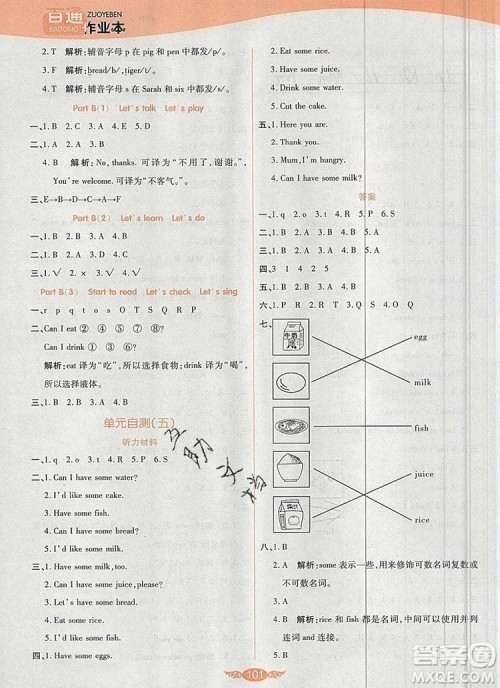 百通
BAITONG
ZUOYEBEN
作业本
2. T 解析:辅音字母 p 在 pig 和 pen 中都发/p/。
3. F 解析:bread/b/,big/b/,tiger/t/。
4. T 解析:辅音字母 s 在 Sarah 和 six 中都发/s/。
Part B(1) Let's talk Let's play
一、1. B 2. C 3. A 4. B
二、1. B 2. A 3. A
4. B 解析:No, thanks. 可译为“不用了,谢谢。”,
You're welcome. 可译为“不客气。”
三、D→E→C→A→F
Part B(2) Let's learn Let's do
一、1. B 2. A 3. A 4. B
二、1. √ 2. × 3. √ 4. ×
Part B(3) Start to read Let's check Let's sing
一、r p q t o s O T S Q R P
二、Can I eat ② ④ ⑥
Can I drink ① ③ ⑤
解析:eat 译为“吃”,所以选择食物;drink 译为“喝”,
所以选择液体。
三、1. B 2. B 3. A 4. A
单元自测(五)
听力材料
一、1. q 2. o 3. t 4. R 5. P 6. S
二、1. Can I have some water?
2. I'd like some cake.
3. Can I have some bread?
4. I'd like some juice.
三、1. Have some milk, too.
2. I'd like some eggs.
3. Have some fish, too.
4. Can I have some juice, please?
5. Can I have some bread?
四、1. Have some eggs.
2. Eat some rice.
3. Have some water.
4. Drink some water.
5. Cut the cake.
五、1. Can I have some water?
2. Thank you.
3. Mum, I'm hungry.
4. Can I have some milk?
答案
一、1. q 2. o 3. t 4. R 5. P 6. S
二、1. B 2. B 3. A 4. A
三、1. A 2. A 3. A 4. B 5. B
四、3 1 4 2 5
五、1. A 2. B 3. B 4. A
六、1. o Q 2. r P 3. q S 4. t R
七、
牛奶
egg
milk
fish
juice
rice
八、1. B
2. A 解析:some 表示一些,用来修饰可数名词复数或
不可数名词。
3. A
4. B 解析:rice 和 fish 都是名词,用 and 来并列
连词和连接。
5. B
101
答案圈
MXQE.COM